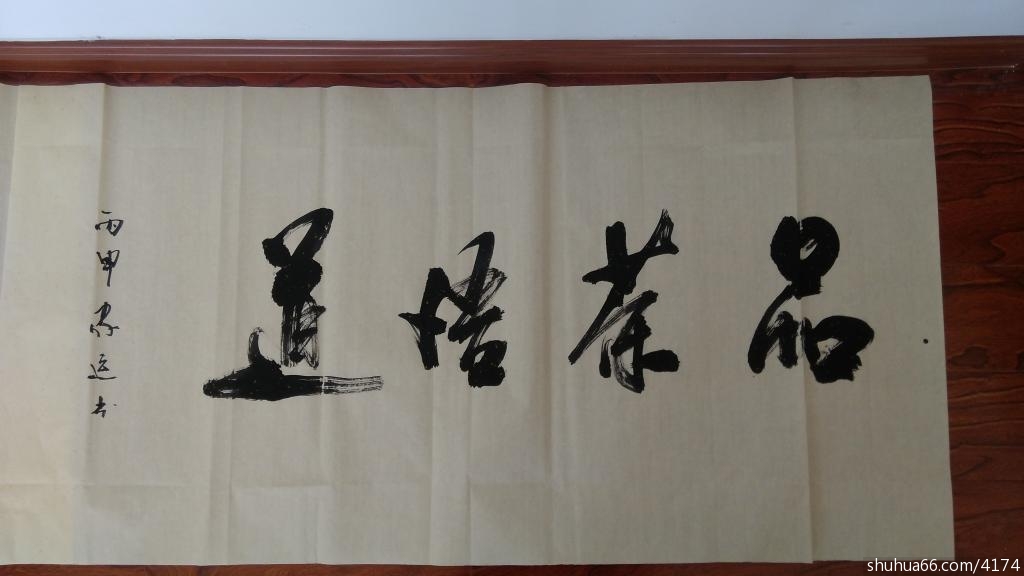 品茶悟道
丙申家运书
shuhua66.com/4174